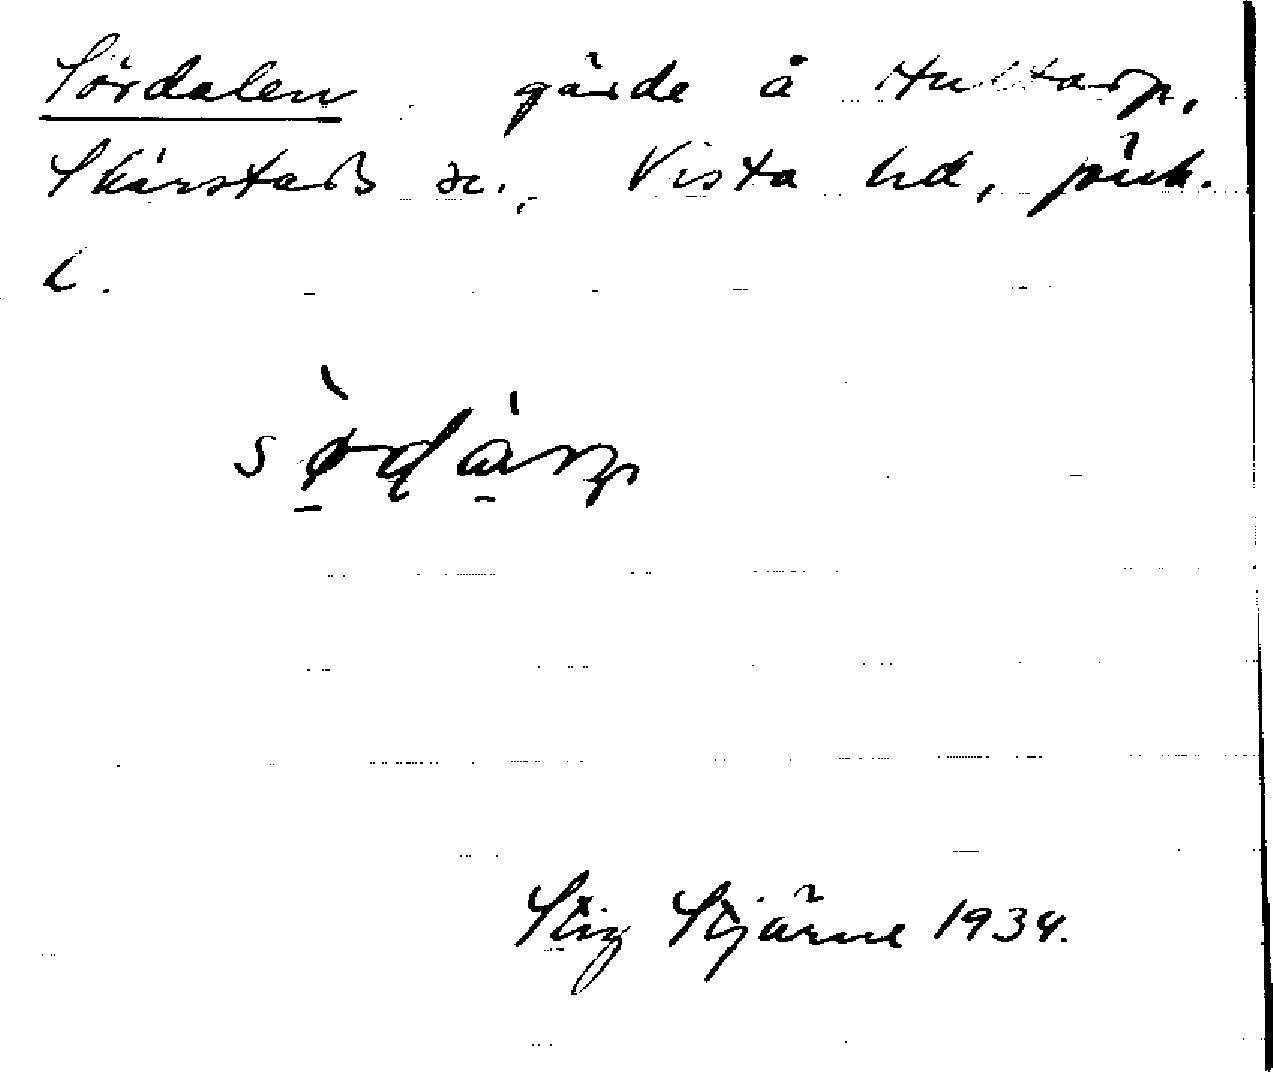 Sördalen gärde å Hultarp,
Skärstads sn., Vista hd, Jönk.
L.
Stig Stjärne 1934.